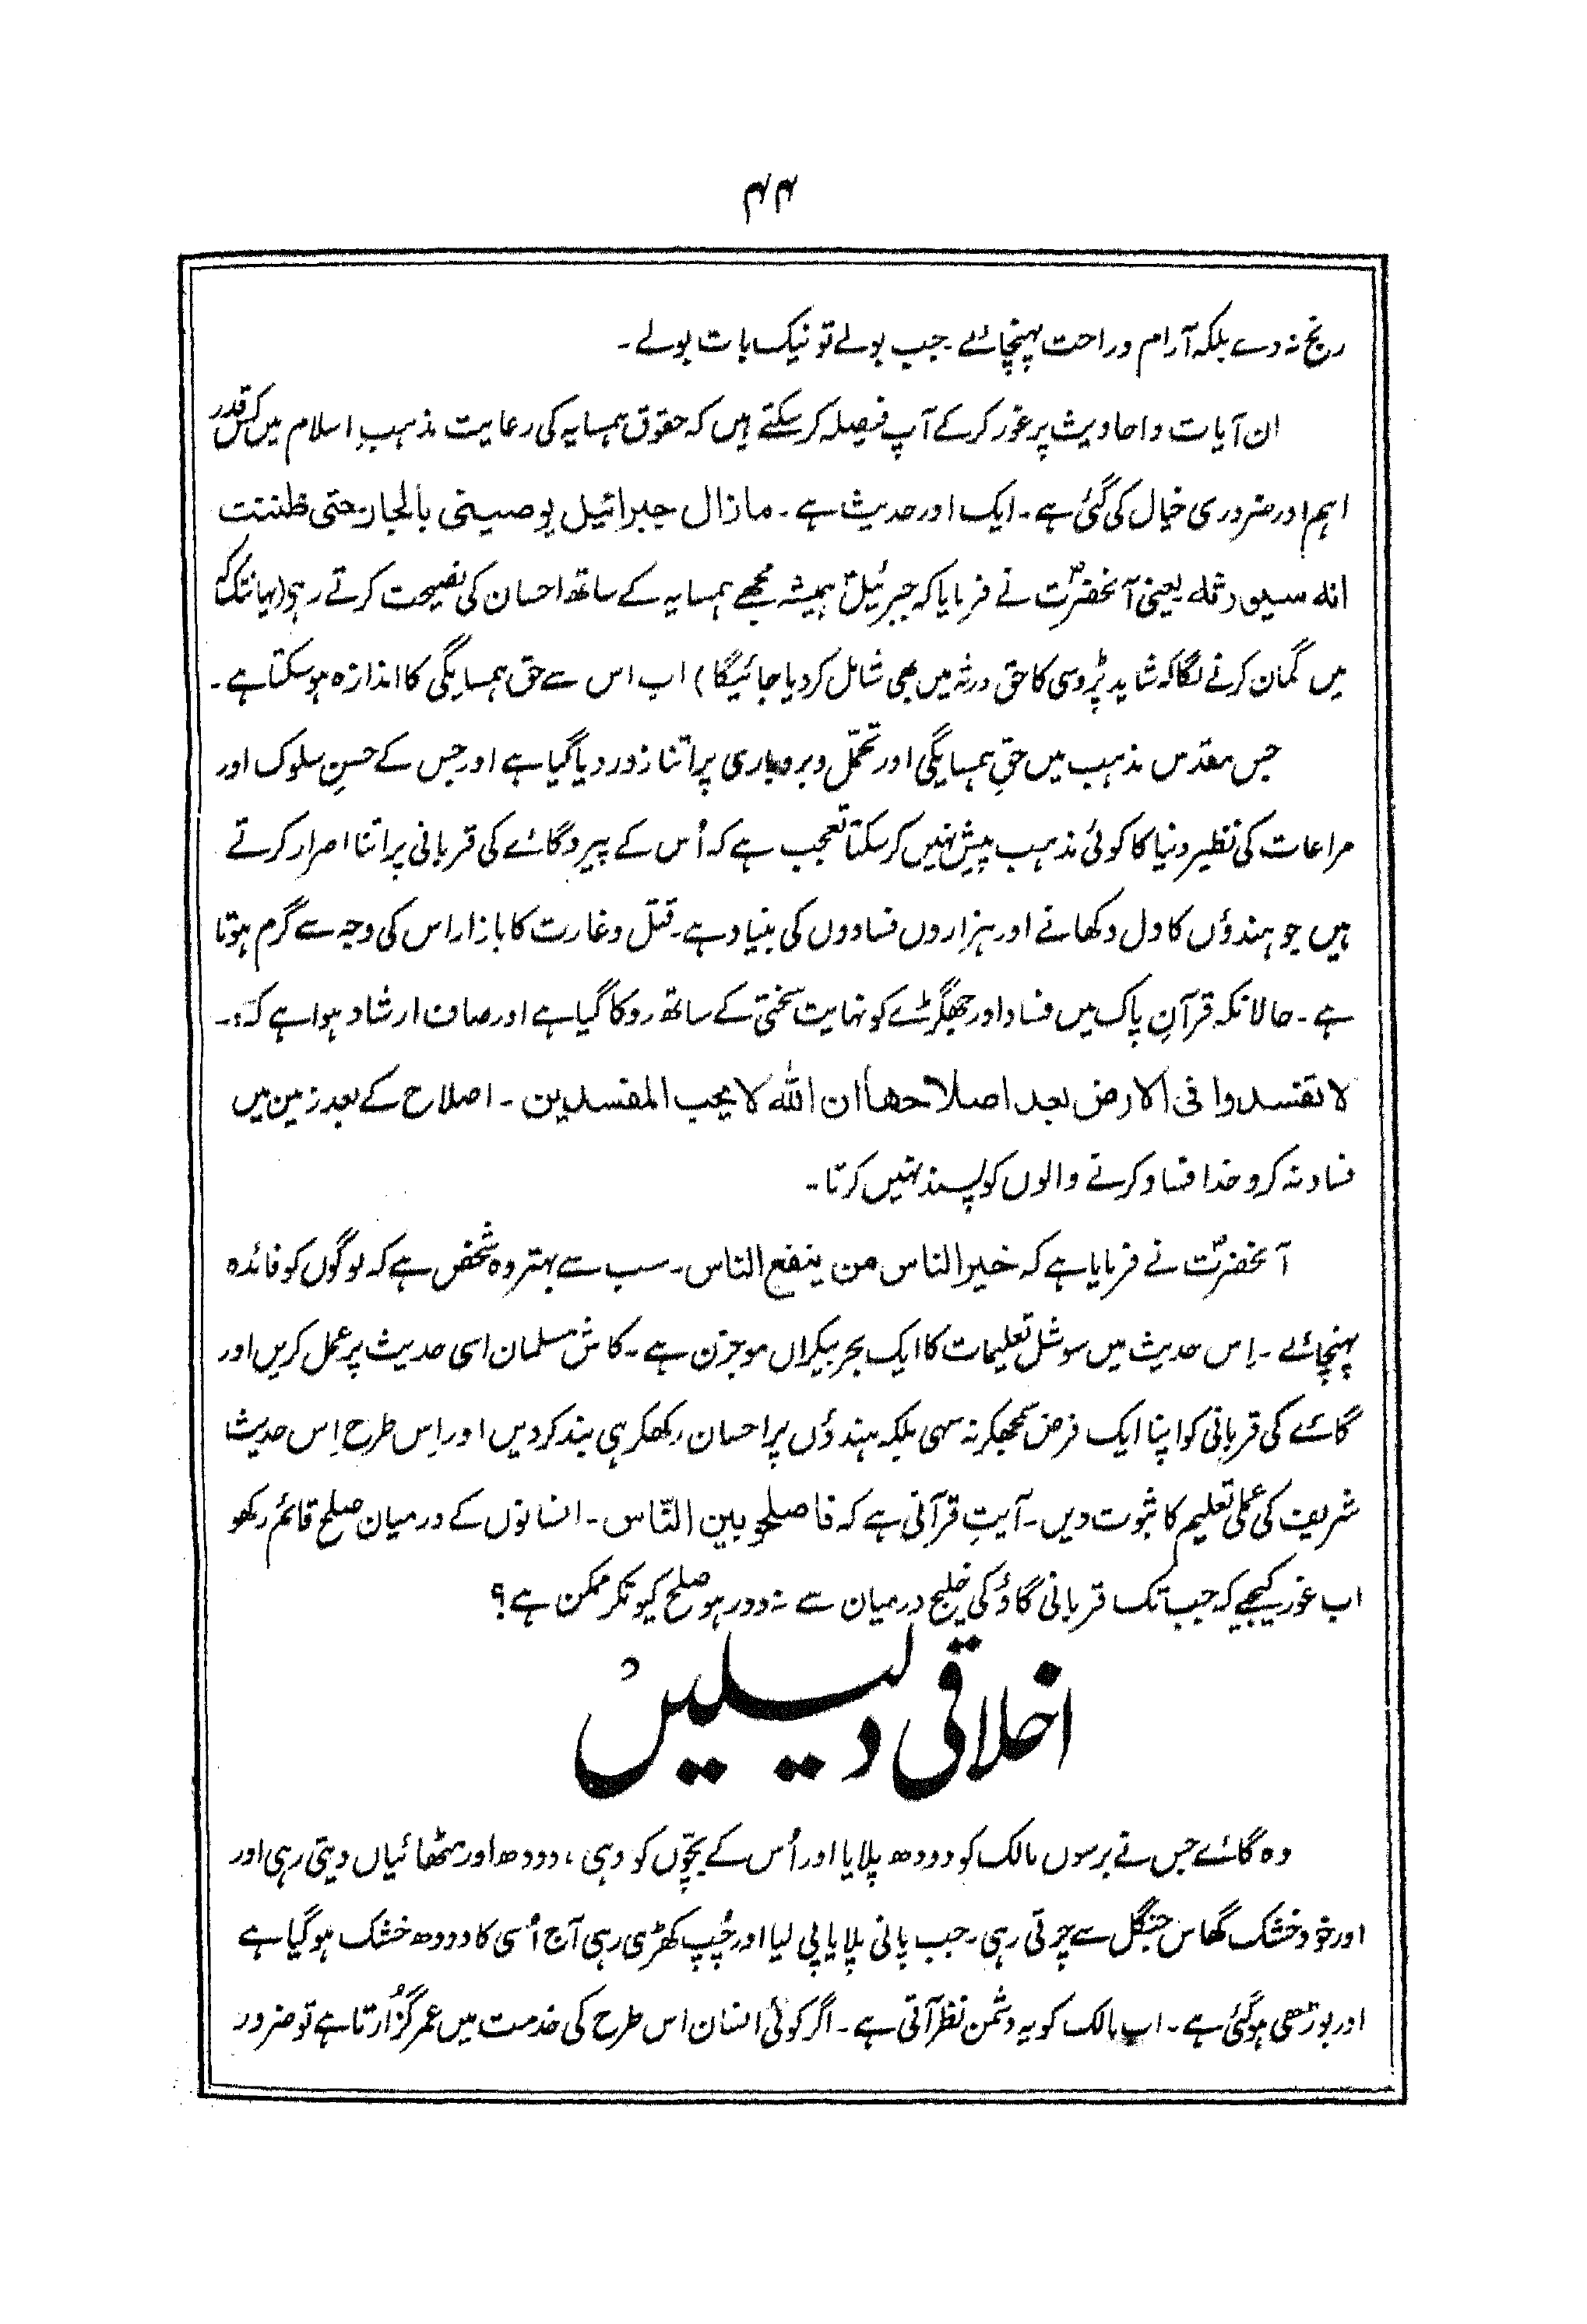 ۴۴
رنج نہ دے بلکہ آرام و راحت پہنچائے۔ جب بولے تو نیک بات بولے۔
ان آیات و احادیث پر غور کرکے آپ فیصلہ کر سکتے ہیں کہ حقوق ہمسایہ کی رعایت مذہبِ اسلام میں کس قدر
اہم اور ضروری خیال کی گئی ہے۔ ایک اور حدیث ہے۔ مازال جبرائیل یوصینی بالجار حتی ظننت
انہ سیورثہ یعنی آنحضرتؐ نے فرمایا کہ جبرئیلؑ ہمیشہ مجھے ہمسایہ کے ساتھ احسان کی نصیحت کرتے رہے (یہانتک کہ
میں گمان کرنے لگا کہ شاید پڑوسی کا حق ورثہ میں بھی شامل کر دیا جائیگا) اب اس سے حق ہمسایگی کا اندازہ ہو سکتا ہے۔
جس مقدس مذہب میں حقِ ہمسایگی اور تحمّل و بردباری پر اتنا زور دیا گیا ہے اور جس کے حسنِ سلوک اور
مراعات کی نظیر دنیا کا کوئی مذہب پیش نہیں کر سکتا تعجب ہے کہ اُس کے پیرو گائے کی قربانی پر اتنا اصرار کرتے
ہیں جو ہندؤں کا دل دکھانے اور ہزاروں فسادوں کی بنیاد ہے۔ قتل و غارت کا بازار اس کی وجہ سے گرم ہوتا
ہے۔ حالانکہ قرآنِ پاک میں فساد اور جھگڑے کو نہایت سختی کے ساتھ روکا گیا ہے اور صاف ارشاد ہوا ہے کہ:۔
لا تفسدوا فی الارض بعد اصلاحھا ان اللہ لا یحب المفسدین۔ اصلاح کے بعد زمین میں
فساد نہ کرو خدا فساد کرنے والوں کو پسند نہیں کرتا۔
آنحضرتؐ نے فرمایا ہے کہ خیر الناس من ینفع الناس۔ سب سے بہتر وہ شخص ہے کہ لوگوں کو فائدہ
پہنچائے۔ اِس حدیث میں سوشل تعلیمات کا ایک بحر بیکراں موجزن ہے۔ کاش مسلمان اسی حدیث پر عمل کریں اور
گائے کی قربانی کو اپنا ایک فرض سمجھکر نہ سہی بلکہ ہندؤں پر احسان رکھکر ہی بند کر دیں اور اِس طرح اِس حدیث
شریف کی عملی تعلیم کا ثبوت دیں۔ آیتِ قرآنی ہے کہ فاصلحو بین النّاس۔ انسانوں کے درمیان صلح قائم رکھو
اب غور کیجیے کہ جب تک قربانی گاؤ کی خلیج درمیان سے نہ دور ہو صلح کیونکر ممکن ہے؟
اخلاقی دلیلیں
وہ گائے جس نے برسوں مالک کو دودھ پلایا اور اُس کے بچّوں کو دہی، دودھ اور مٹھائیاں دیتی رہی اور
اور خود خشک گھاس جنگل سے چرتی رہی۔ جب پانی پلایا پی لیا اور چُپ کھڑی رہی آج اُسی کا دودھ خشک ہو گیا ہے
اور بوڑھی ہوگئی ہے۔ اب مالک کو یہ دشمن نظر آتی ہے۔ اگر کوئی انسان اس طرح کی خدمت میں عمر گزُارتا ہے تو ضرور